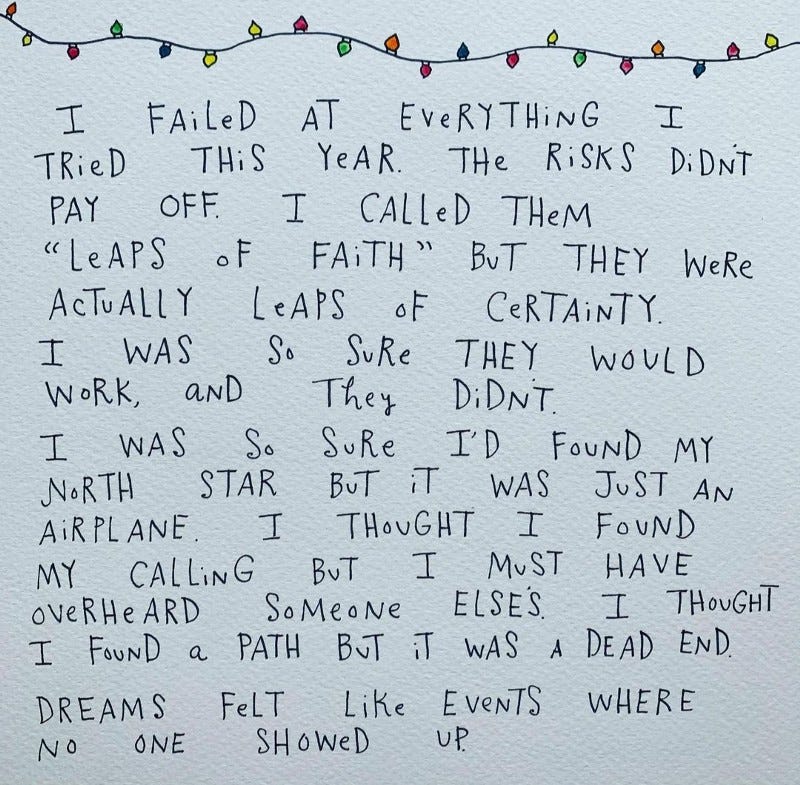 I FAiLeD AT EVeRYTHiNG I
TRieD THiS YeAR. THe RiSKS DiDN'T
PAY OFF. I CALLeD THeM
“LeAPS oF FAiTH” BuT THEY WeRe
ACTuALLY LeAPS oF CeRTAiNTY.
I WAS So SuRe THEY WOULD
WoRK, aND They DiDN'T.
I WAS So SuRe I'D FOUND MY
NoRTH STAR BuT iT WAS JuST AN
AiRPLANE. I THOuGHT I FOUND
MY CALLiNG BuT I MuST HAVE
OVeRHeARD SoMeoNe ELSE'S. I THOuGHT
I FouND a PATH BuT iT WAS A DEAD END.
DREAMS FeLT LiKe EVeNTS WHERE
No ONE SHOWeD UP.